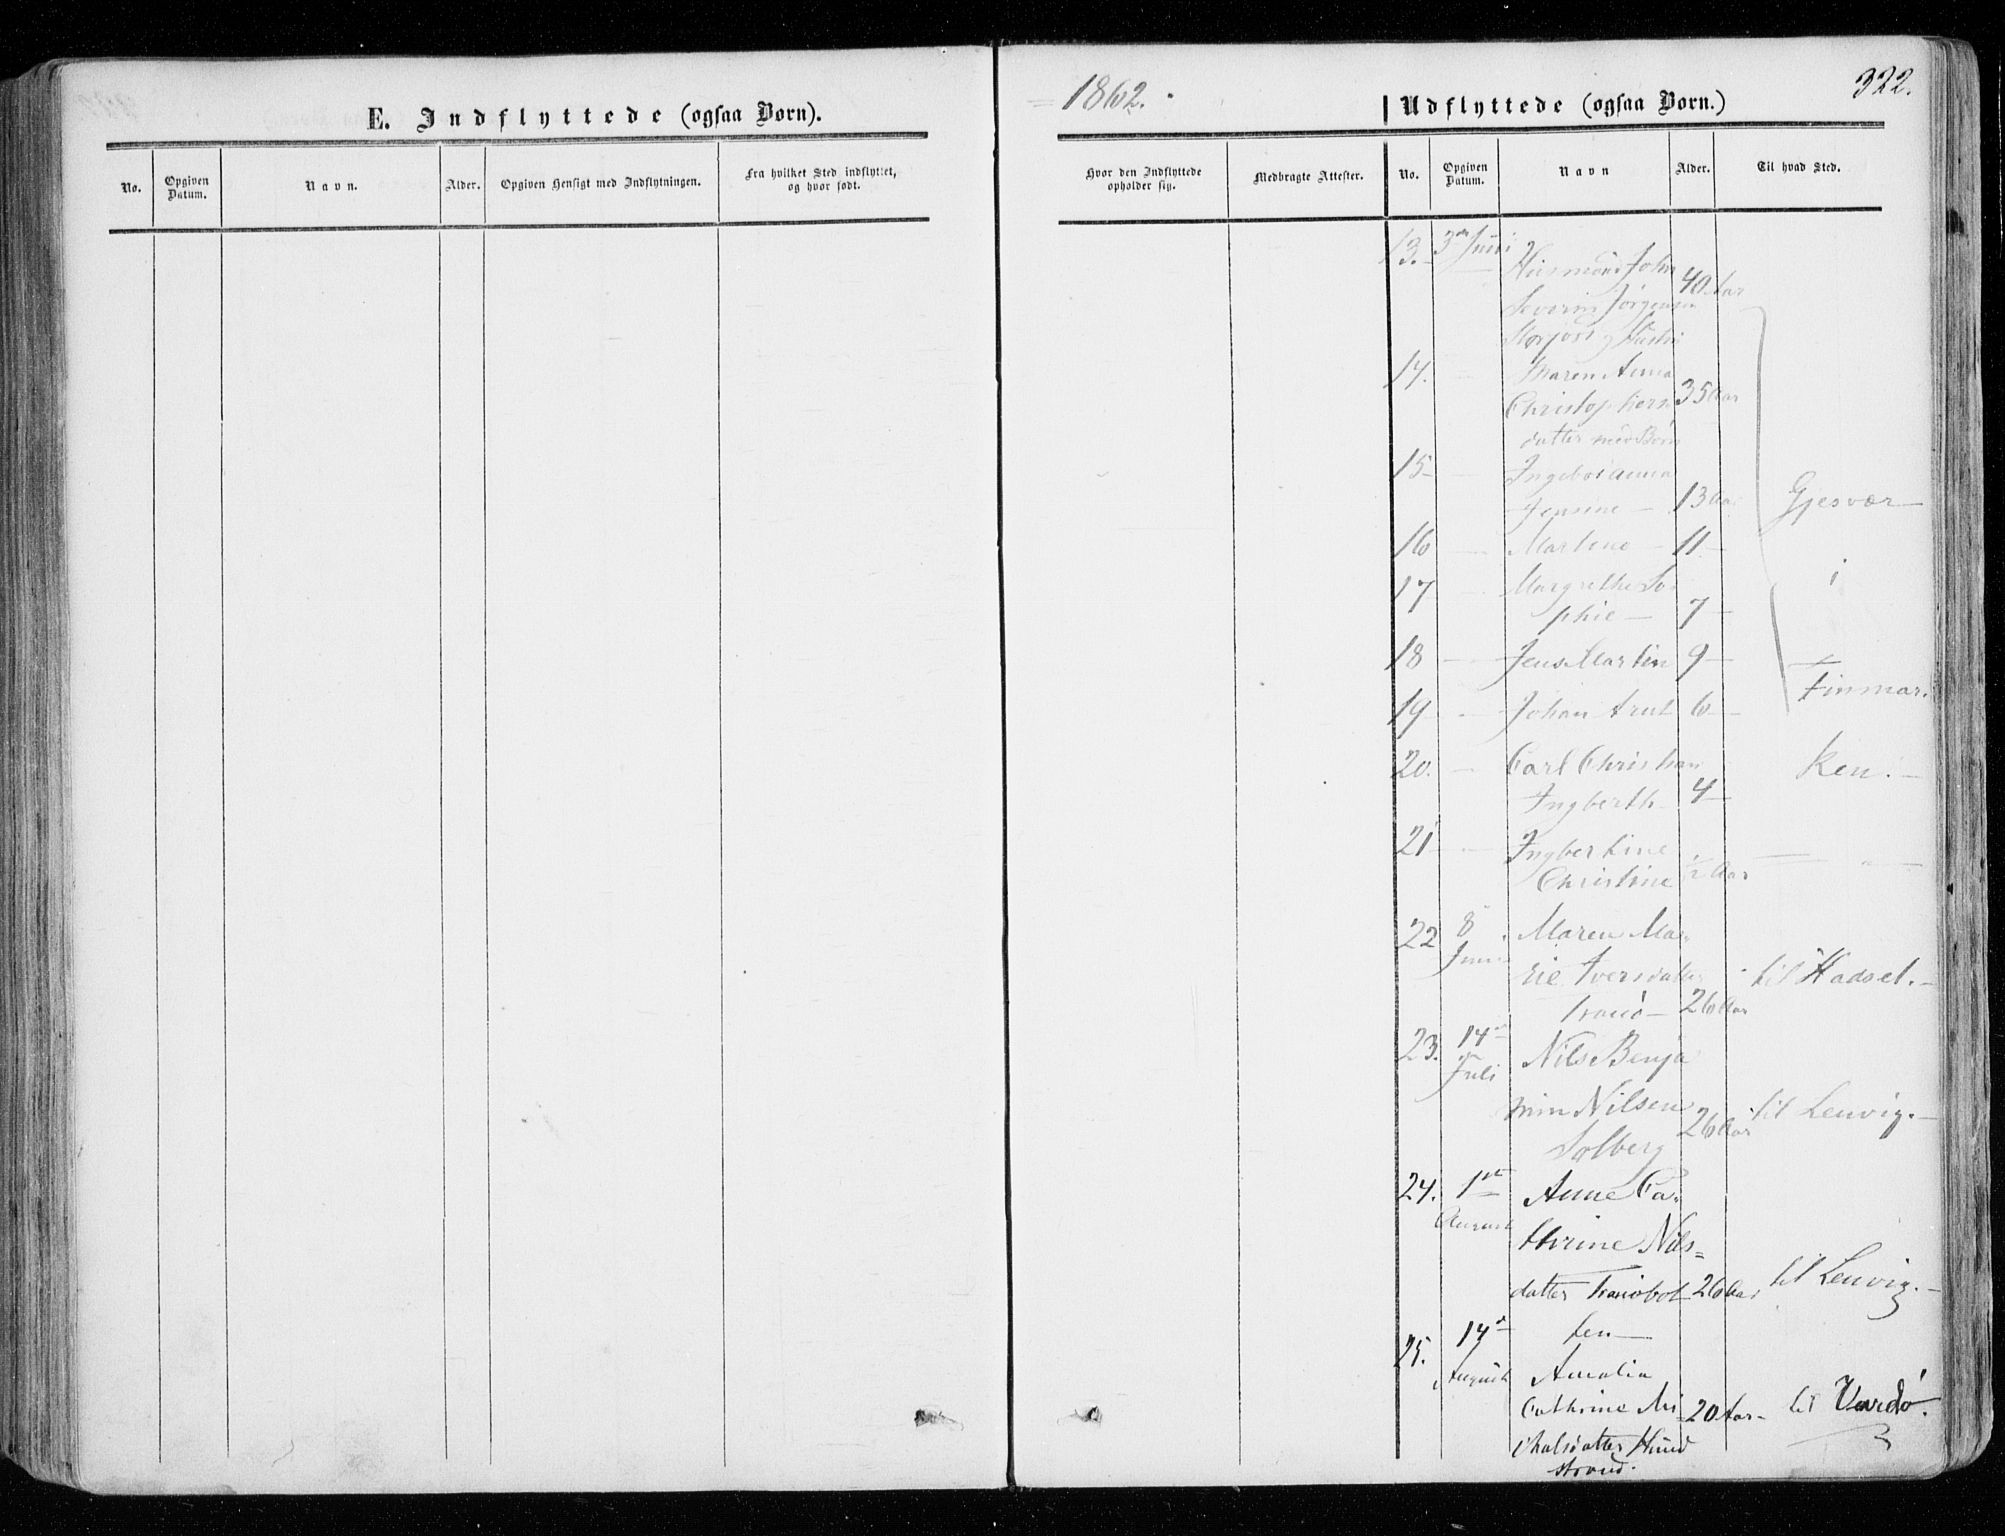 322.
1862.
E. Indflyttede (ogsaa Børn).
Udflyttede (ogsaa Børn.)
No.
Opgiven Datum.
Navn.
Alder.
Opgiven Hensigt med Indflytningen.
Fra hvilket Sted indflyttet, og hvor født.
Hvor den Indflyttede opholder sig.
Medbragte Attester.
No.
Opgiven Datum.
Navn
Alder.
Til hvad Sted.
13. 3 Juni Husmand John
Severin Jørgensen 40 Aar
Hustru
14. Maren Anna
Christophers 35 Aar
datter med Børn
15 Ingebor Anna
Jensine 13 Aar
Gjesvær
16 Martine 11
17 Margrethe So
phie 7
i
18 Jens Martin 9
Finmar
19 Johan Arnt 6
20. Carl Christian
Ingberth 4
ken.
21 Ingbertine
Christine ½ Aar
22 8 Juni Maren Ma
rie Iversdatter
Tranö 26 Aar
til Hadsel.
23. 14 Juli Nils Benja
min Nilsen
Solberg 26 Aar
til Lenvig.
24. 1 August Anne Ca
thrine Nils=
datter Tranöbot 26 Aar
ten
til Lenvig.
25. 14 August Amalia
Cathrine Mi 20 Aar
chalsdatter Hund
strand.
til Vardö.